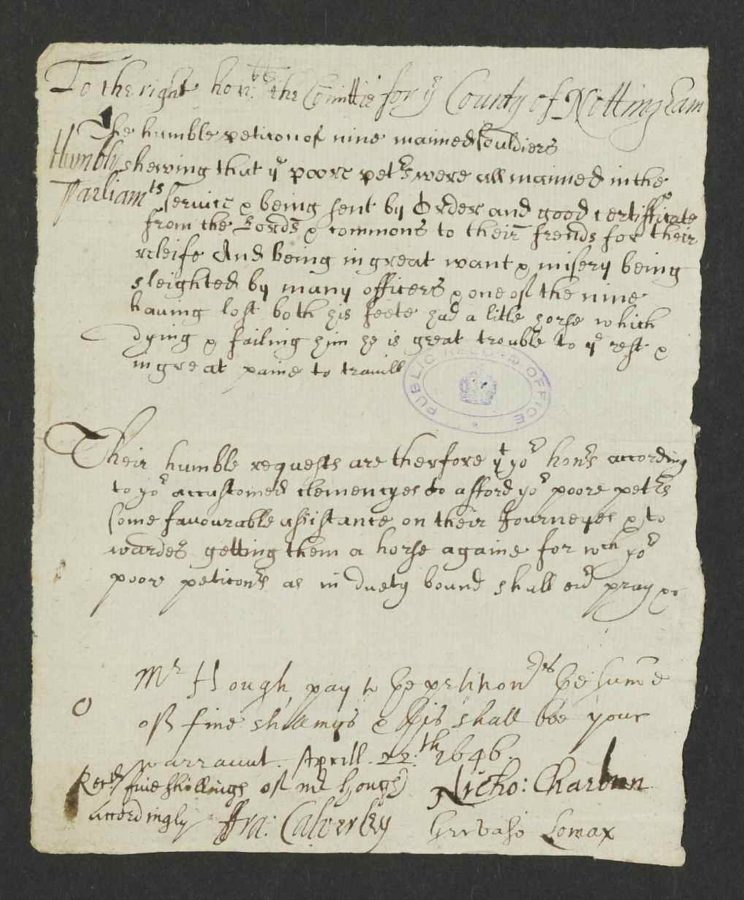 To the right hon.ble the Comittie for ye County of Nottingham
The humble peticon of nine maimed Souldiers
Humbly shewing that ye poore petrs were all maimed in the
Parliamts service & being sent by Order and good certifficate
from the Lords & commons to their frends for their
releife And being in great want & misery being
sleighted by many officers & one of the nine
having lost both his feete had a litle horse which
dying & failing him he is great trouble to ye rest &
in great paine to travill
PUBLIC RECORD OFFICE
Their humble requests are therfore yt yor honrs according
to yor accustomed clemencyes to afford yor poore petrs
some favourable assistance on their Journeyes & to
wardes getting them a horse againe for wch yor
poore peticonrs as in duety bound shall evr pray &c
Mr Hough pay to the petitionrs the sume
of five shillings & this shall bee your
warrant. Aprill 22.th 1646
Recd five shillings of mr Hough Nicho: Charlton
accordingly Fra: Calverley Gervase Lomax